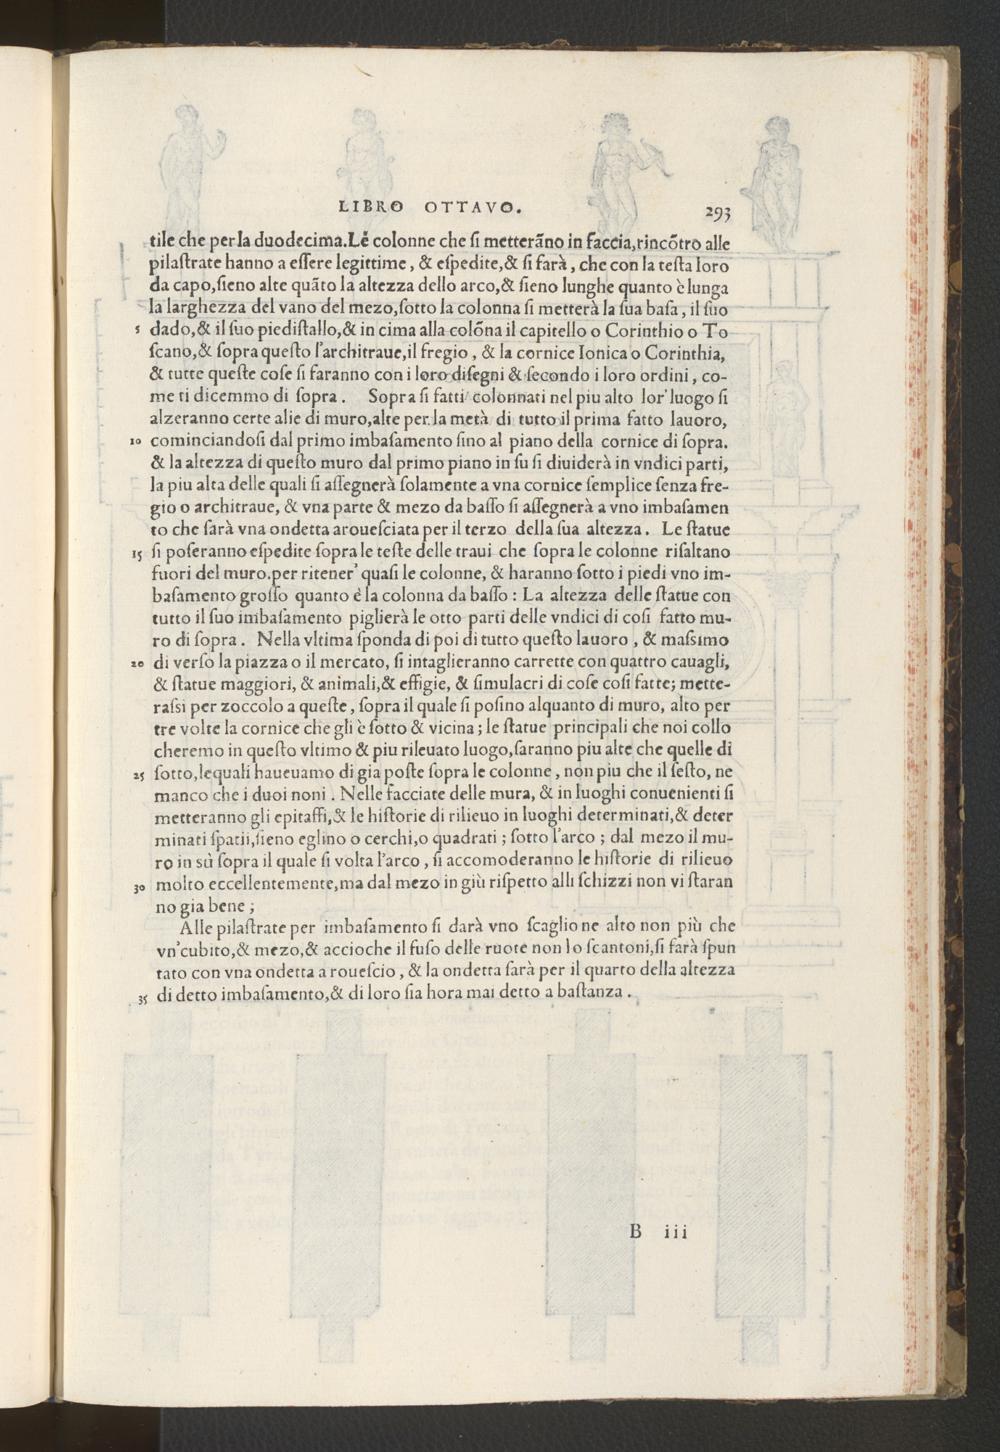 LIBRO OTTAVO. 293
tile che per la duodecima.Lé colonne che ſi metterāno in faccia,rincōtro alle
pilaſtrate hanno a eſſere legittime, & eſpedite,& ſi farà, che con la teſta loro
da capo,ſieno alte quāto la altezza dello arco,& ſieno lunghe quanto è lunga
la larghezza del vano del mezo,ſotto la colonna ſi metterà la ſua baſa, il ſuo
5 dado,& il ſuo piediſtallo,& in cima alla colōna il capitello o Corinthio o To
ſcano,& ſopra queſto l'architraue,il fregio, & la cornice Ionica o Corinthia,
& tutte queſte coſe ſi faranno con i loro diſegni & ſecondo i loro ordini, co-
me ti dicemmo di ſopra. Sopra ſi fatti colonnati nel piu alto lor' luogo ſi
alzeranno certe alie di muro,alte per la metà di tutto il prima fatto lauoro,
10 cominciandoſi dal primo imbaſamento ſino al piano della cornice di ſopra.
& la altezza di queſto muro dal primo piano in ſu ſi diuiderà in vndici parti,
la piu alta delle quali ſi aſſegnerà ſolamente a vna cornice ſemplice ſenza fre-
gio o architraue, & vna parte & mezo da baſſo ſi aſſegnerà a vno imbaſamen
to che ſarà vna ondetta aroueſciata per il terzo della ſua altezza. Le ſtatue
15 ſi poſeranno eſpedite ſopra le teſte delle traui che ſopra le colonne riſaltano
fuori del muro.per ritener' quaſi le colonne, & haranno ſotto i piedi vno im-
baſamento groſſo quanto è la colonna da baſſo: La altezza delle ſtatue con
tutto il ſuo imbaſamento piglierà le otto parti delle vndici di coſi fatto mu-
ro di ſopra. Nella vltima ſponda di poi di tutto queſto lauoro, & maſsimo
20 di verſo la piazza o il mercato, ſi intaglieranno carrette con quattro cauagli,
& ſtatue maggiori, & animali,& effigie, & ſimulacri di coſe coſi fatte; mette-
raſsi per zoccolo a queſte, ſopra il quale ſi poſino alquanto di muro, alto per
tre volte la cornice che gli è ſotto & vicina; le ſtatue principali che noi collo
cheremo in queſto vltimo & piu rileuato luogo,ſaranno piu alte che quelle di
25 ſotto,lequali haueuamo di gia poſte ſopra le colonne, non piu che il ſeſto, ne
manco che i duoi noni. Nelle facciate delle mura, & in luoghi conuenienti ſi
metteranno gli epitaffi,& le hiſtorie di rilieuo in luoghi determinati,& deter
minati ſpatii,ſieno eglino o cerchi,o quadrati; ſotto l'arco; dal mezo il mu-
ro in sù ſopra il quale ſi volta l'arco, ſi accomoderanno le hiſtorie di rilieuo
30 molto eccellentemente,ma dal mezo in giù riſpetto alli ſchizzi non vi ſtaran
no gia bene;
Alle pilaſtrate per imbaſamento ſi darà vno ſcaglione alto non più che
vn'cubito,& mezo,& accioche il fuſo delle ruote non lo ſcantoni,ſi farà ſpun
tato con vna ondetta a roueſcio, & la ondetta ſarà per il quarto della altezza
35 di detto imbaſamento,& di loro ſia hora mai detto a baſtanza.
B iii